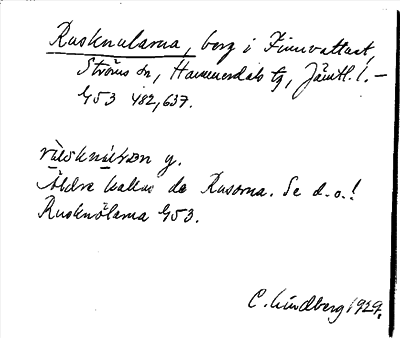 Rusknularna, berg i Finnvattnet,
Ströms sn, Hammerdals tg, Jämtl. l. –
G53 482,637.
y.
Äldre kallas de Rusorna. Se d.o.!
Rusknölarna G53.
C. Lindberg 1929.